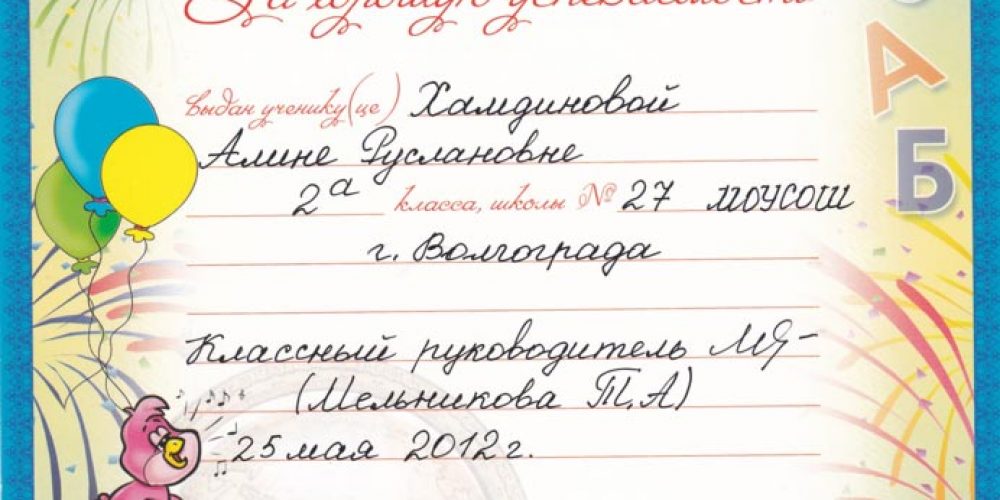 За хорошую успеваемость
выдан ученику(це) Хамдиновой
Алине Руслановне
2а класса, школы № 27 МОУСОШ
г. Волгограда
Классный руководитель
(Мельникова Т.А)
25 мая 2012г.
А
Б